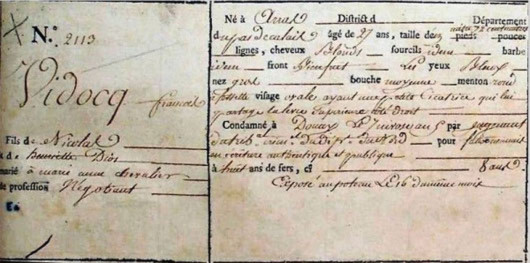 N.º 2113
Vidocq francois
Fils de Nicolas
& de henriette Dios
marié à marie anne chevalier
de profession Négotiant
Né à Arras District d Département
du pas de calais âgé de 27 ans, taille de pieds pouces
mètre 72 centimètres
lignes, cheveux blonds sourcils idem barbe
idem front yeux bleus
nez gros bouche moyenne menton rond
à fossette visage ovale ayant une petite Cicatrice qui lui
partage la lèvre supérieure côté droit
Condamné à Douay par jugement
pour
en écriture authentique et publique
à huit ans de fers, ci 8 ans
Exposé au poteau Le 16 du même mois